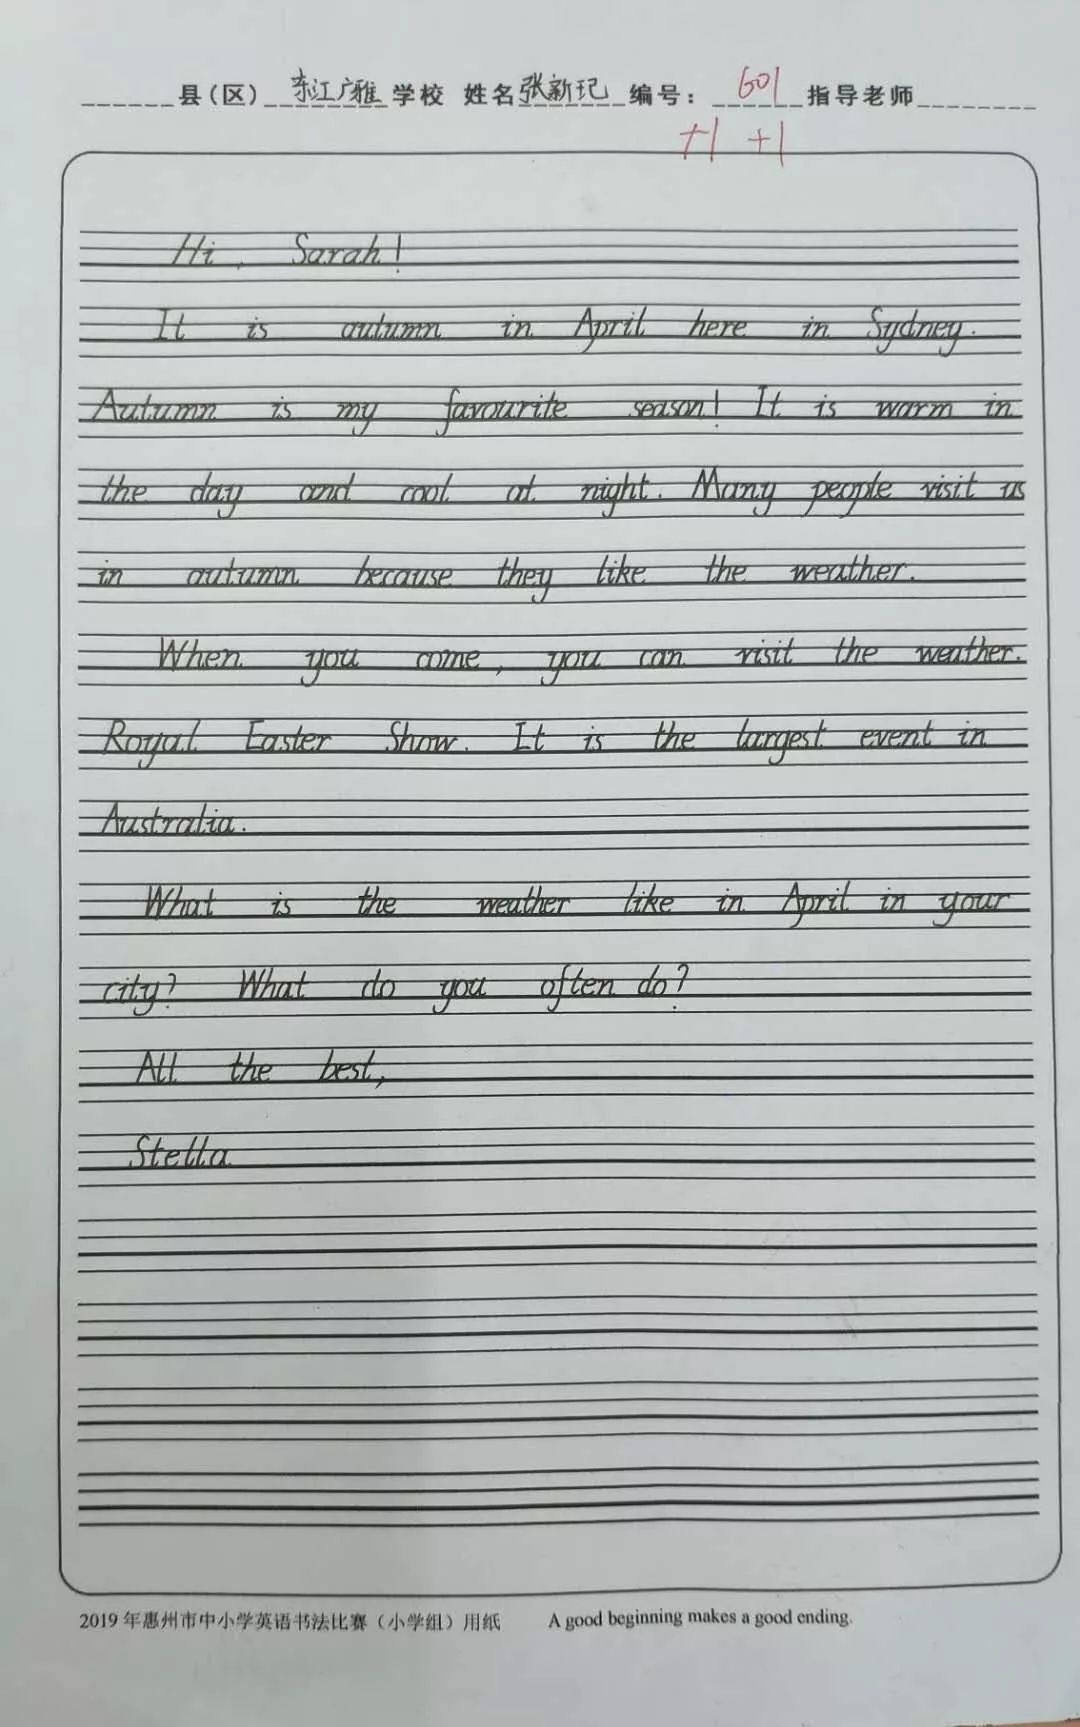 县(区) 东江广雅 学校 姓名 张新玘 编号: 601 指导老师
+1 +1
Hi, Sarah!
It is autumn in April here in Sydney.
Autumn is my favourite season! It is warm in
the day and cool at night. Many people visit us
in autumn because they like the weather.
When you come, you can visit the weather.
Royal Easter Show. It is the largest event in
Australia.
What is the weather like in April in your
city? What do you often do?
All the best,
Stella
2019年惠州市中小学英语书法比赛(小学组)用纸 A good beginning makes a good ending.